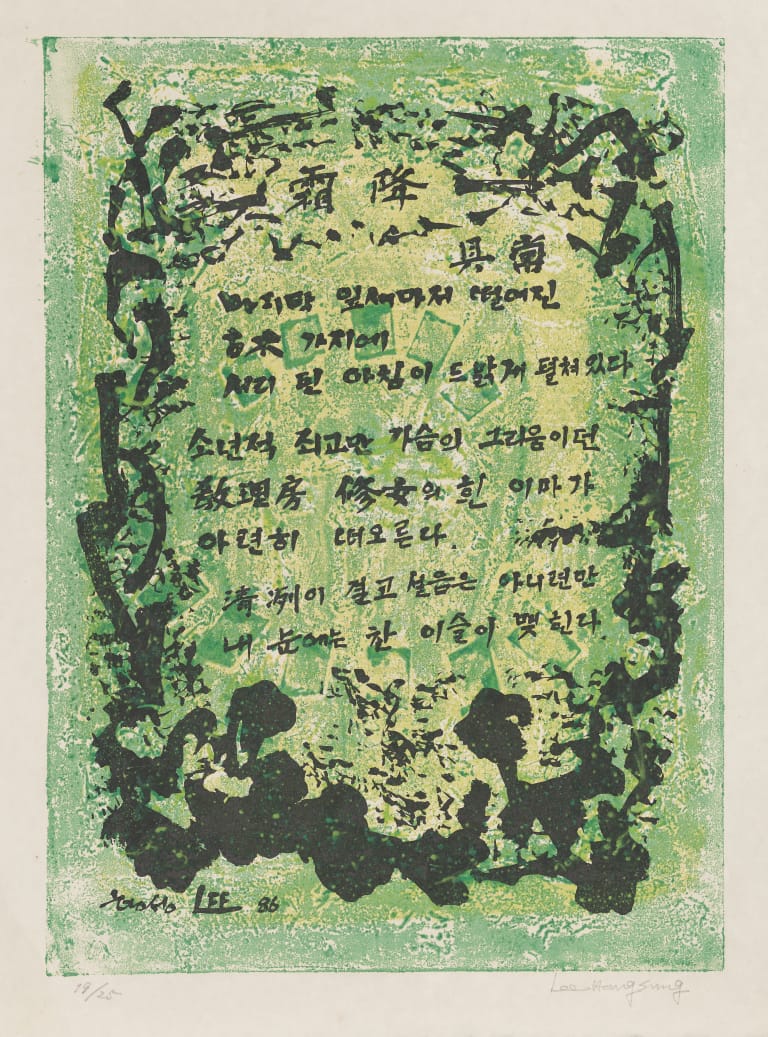 霜降
具常
마지막 잎새마저 떨어진
古木 가지에
서리 핀 아침이 드맑게 펼쳐있다
소년적 죄고만 가슴의 그리움이던
敎理房 修女의 흰 이마가
아련히 떠오른다.
淸冽이 결고 설음은 아니련만
내 눈에는 찬 이슬이 맺힌다.
LEE 86
19/25 Lee Hang Sung